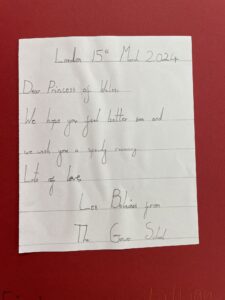 London 15th March 2024
Dear Princess of Wales
We hope you feel better soon and
we wish you a speedy recovery
Lots of love
Les
from
The School